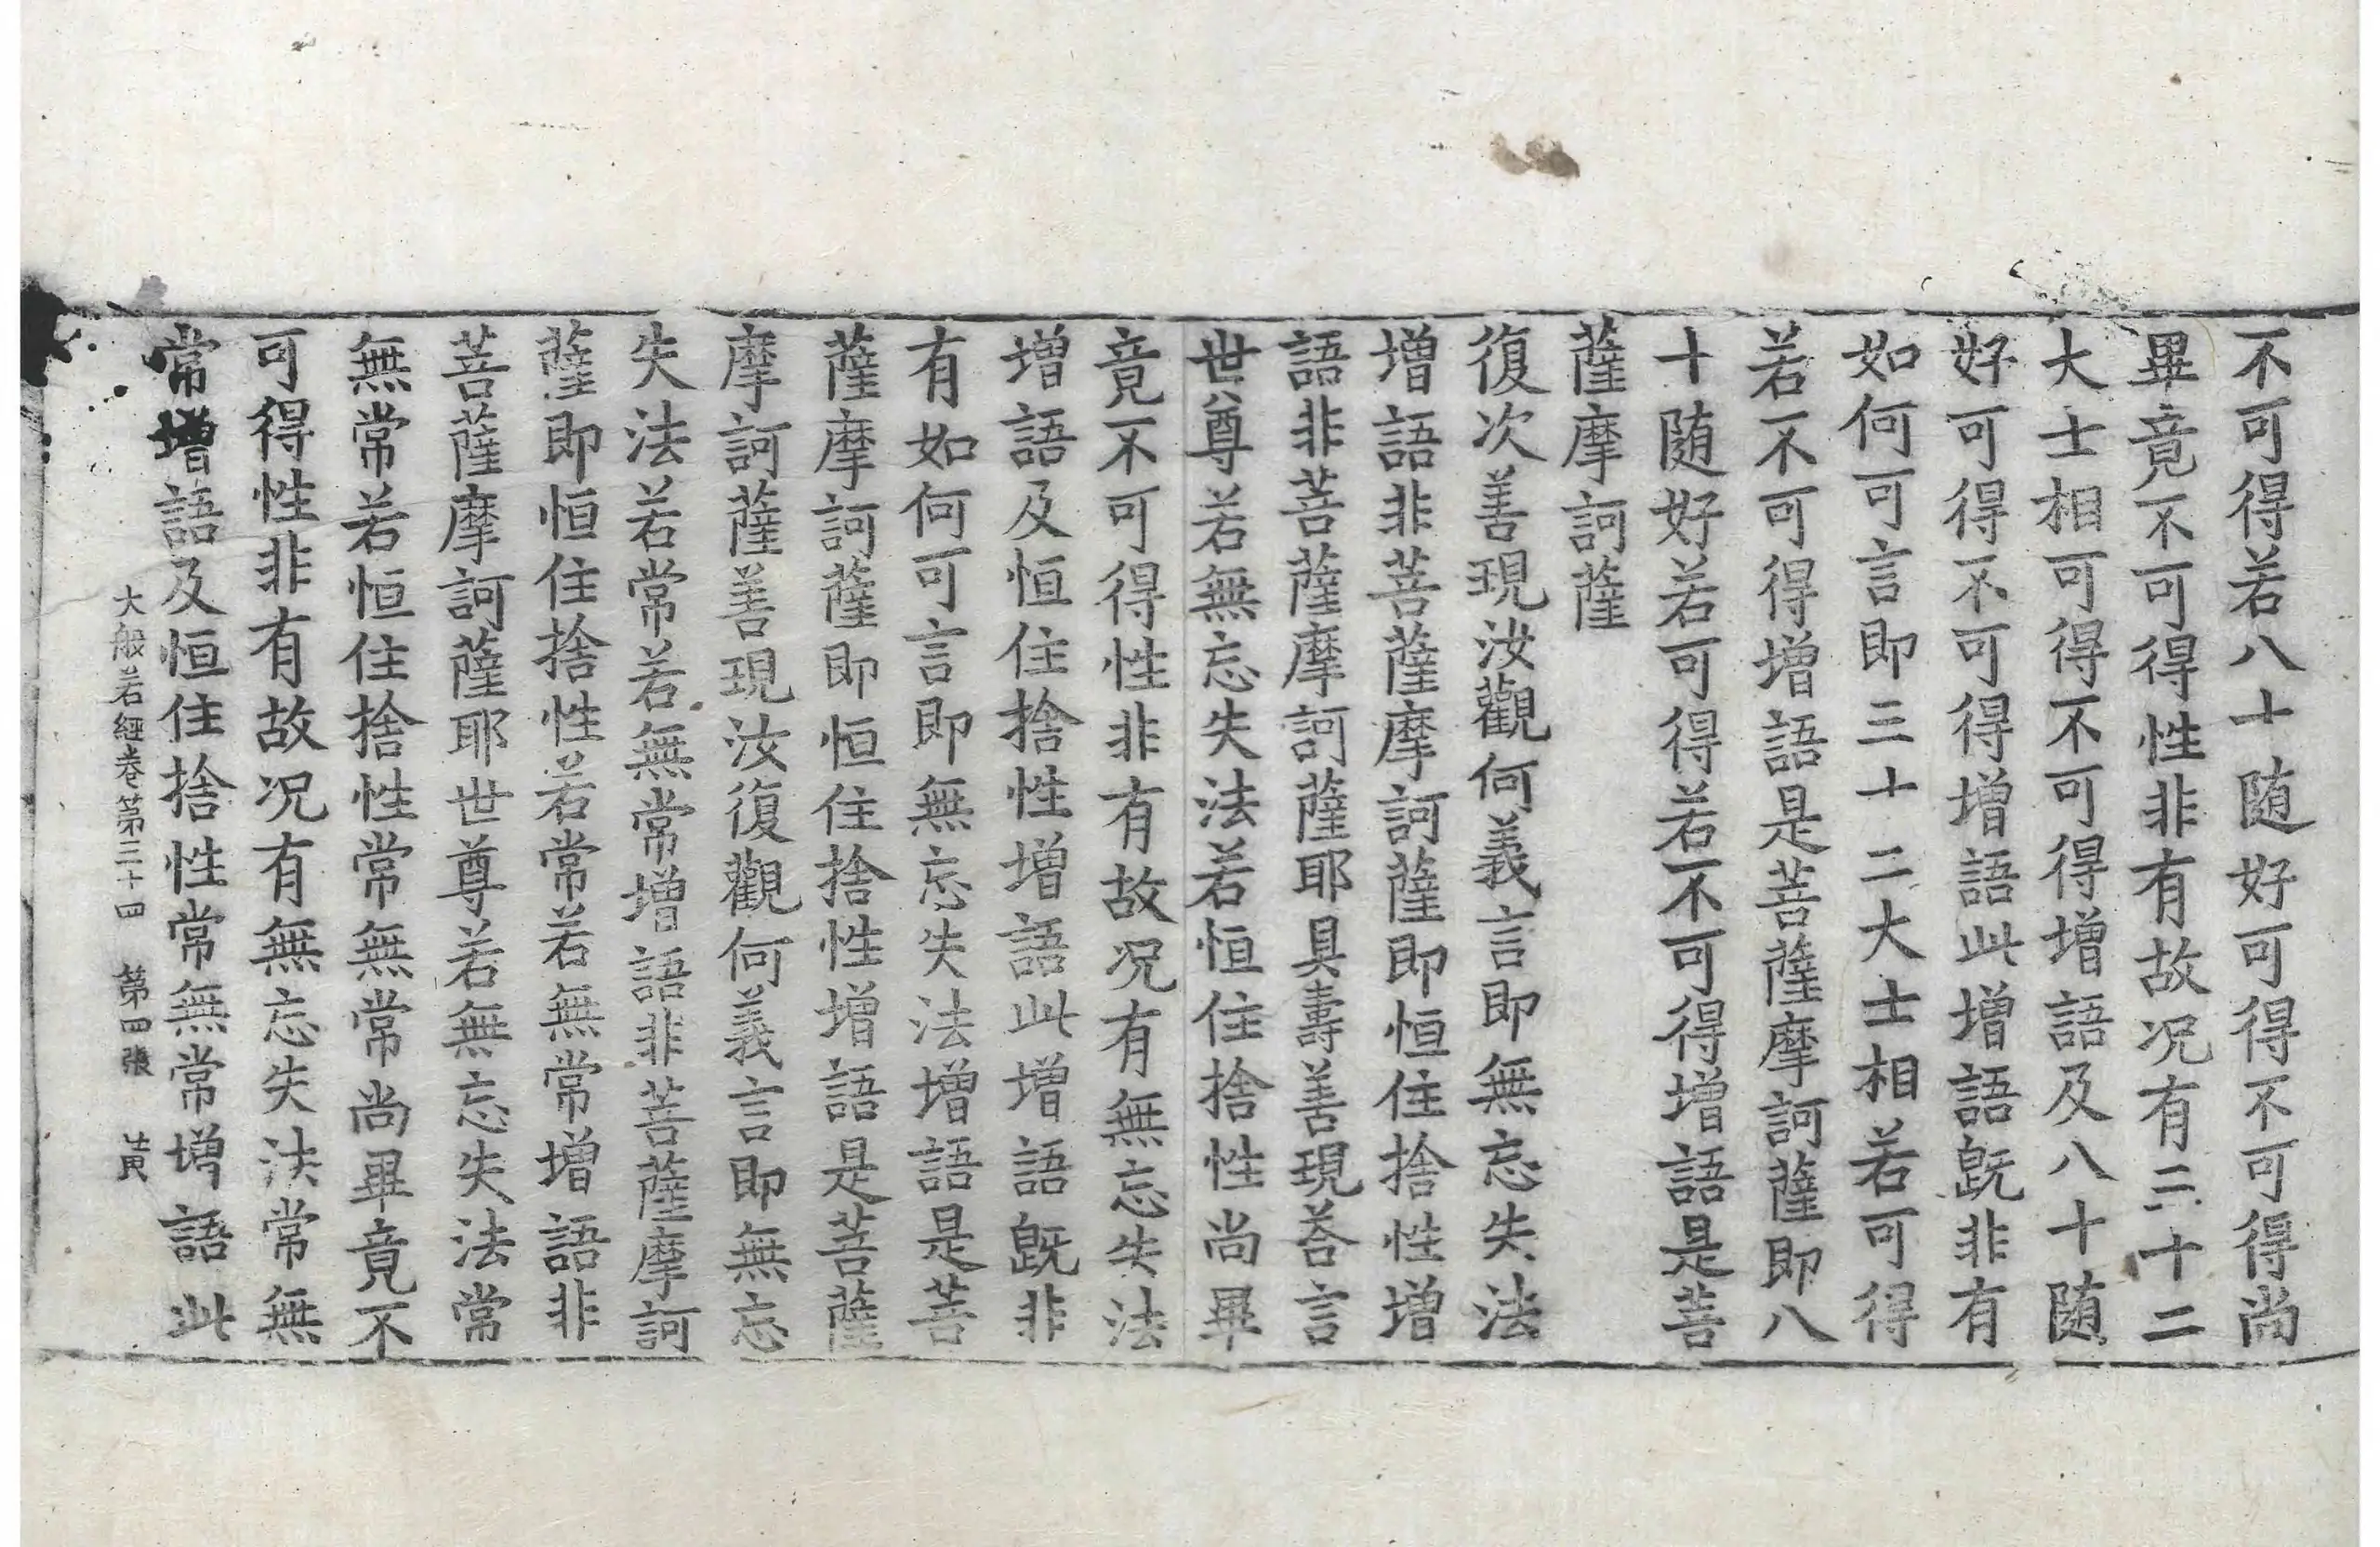 不可得若八十随好可得不可得尚
畢竟不可得性非有故况有三十二
大士相可得不可得增語及八十随
好可得不可得增語此增語旣非有
如何可言即三十二大士相若可得
若不可得增語是菩薩摩訶薩即八
十随好若可得若不可得增語是菩
薩摩訶薩
復次善現汝觀何義言即無忘失法
增語非菩薩摩訶薩即恒住捨性增
語非菩薩摩訶薩耶具壽善現荅言
世尊若無忘失法若恒住捨性尚畢
竟不可得性非有故况有無忘失法
增語及恒住捨性增語此增語旣非
有如何可言即無忘失法增語是菩
薩摩訶薩即恒住捨性增語是菩薩
摩訶薩善現汝復觀何義言即無忘
失法若常若無常增語非菩薩摩訶
薩即恒住捨性若常若無常增語非
菩薩摩訶薩耶世尊若無忘失法常
無常若恒住捨性常無常尚畢竟不
可得性非有故况有無忘失法常無
常增語及恒住捨性常無常增語此
大般若經卷第三十四 第四張 黄